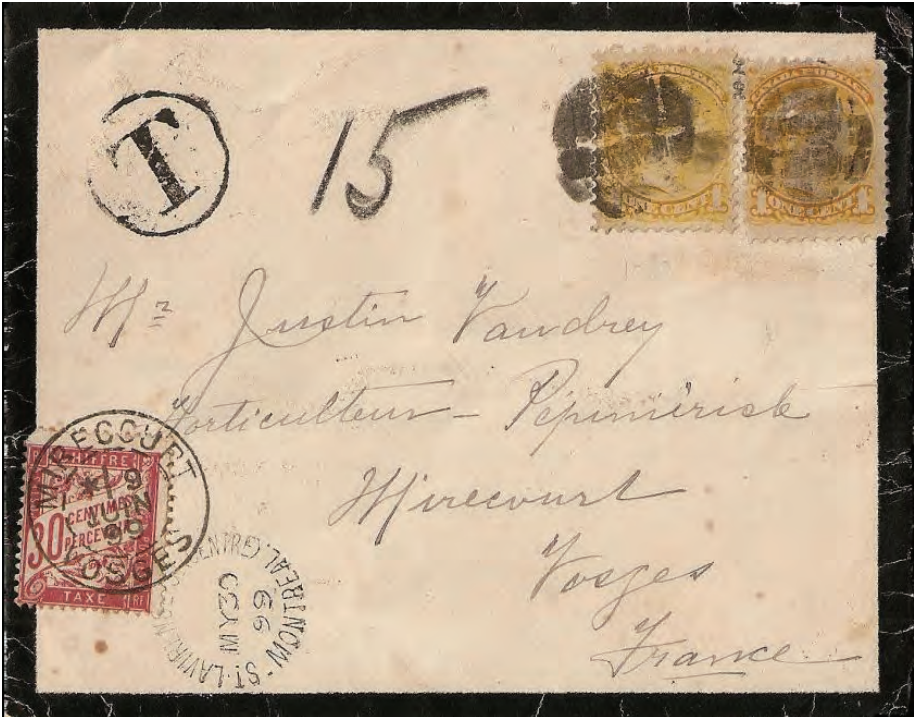 T
15
ONE CENT 1
1 ONE CENT 1
Mr Justin Vaudrey
Horticulteur - Pépiniériste
Mirecourt
Vosges
France
MIRECOURT
19
JUIN
99
VOSGES
CHIFFRE
30 CENTIMES
PERCEVOIR
TAXE
ST. LAWRENCE CENTRE MONTREAL
MY 20
99